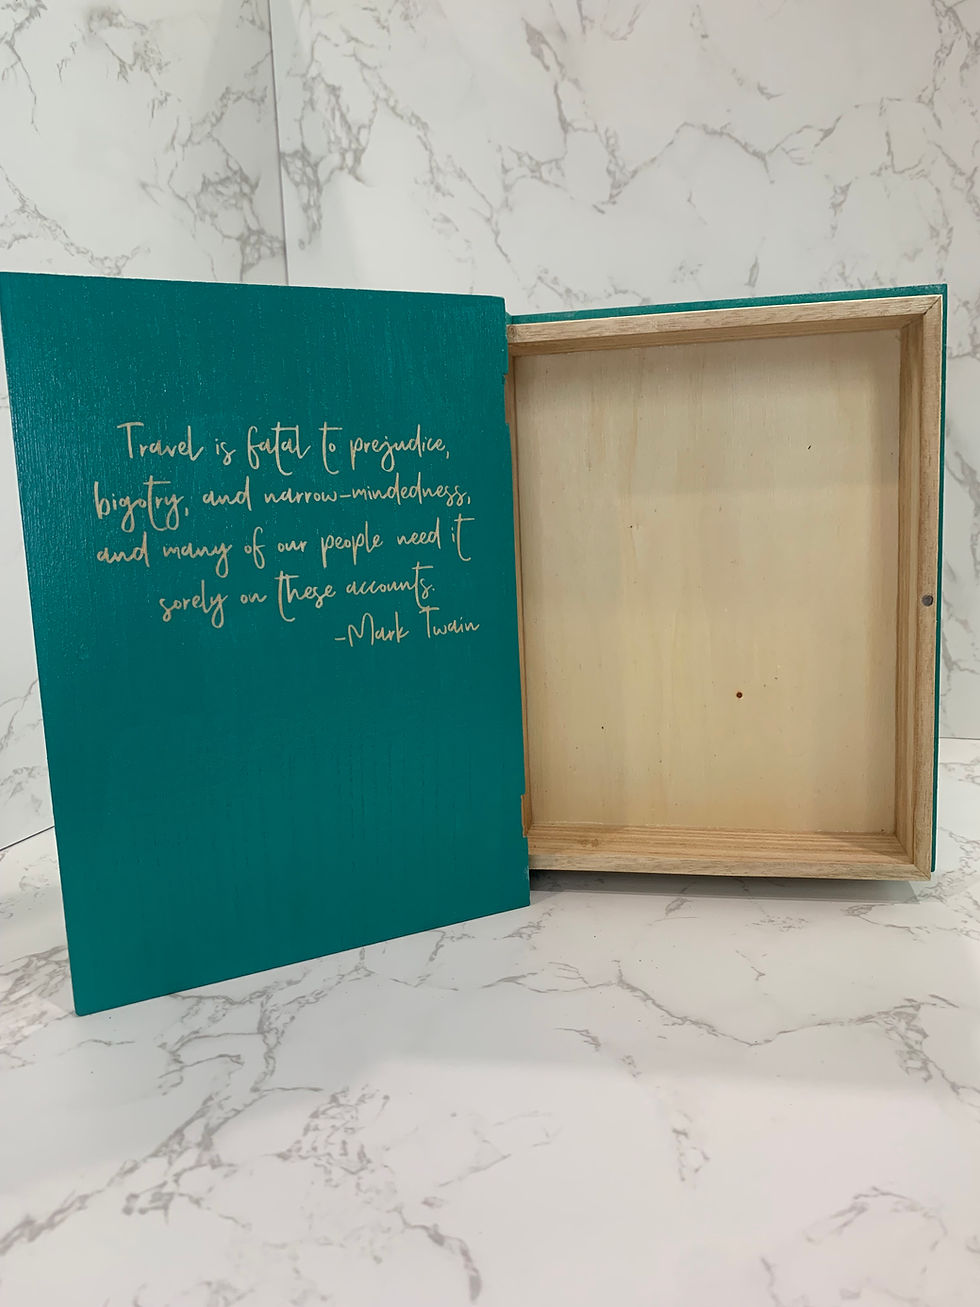 Travel is fatal to prejudice,
bigotry, and narrow-mindedness,
and many of our people need it
sorely on these accounts.
-Mark Twain